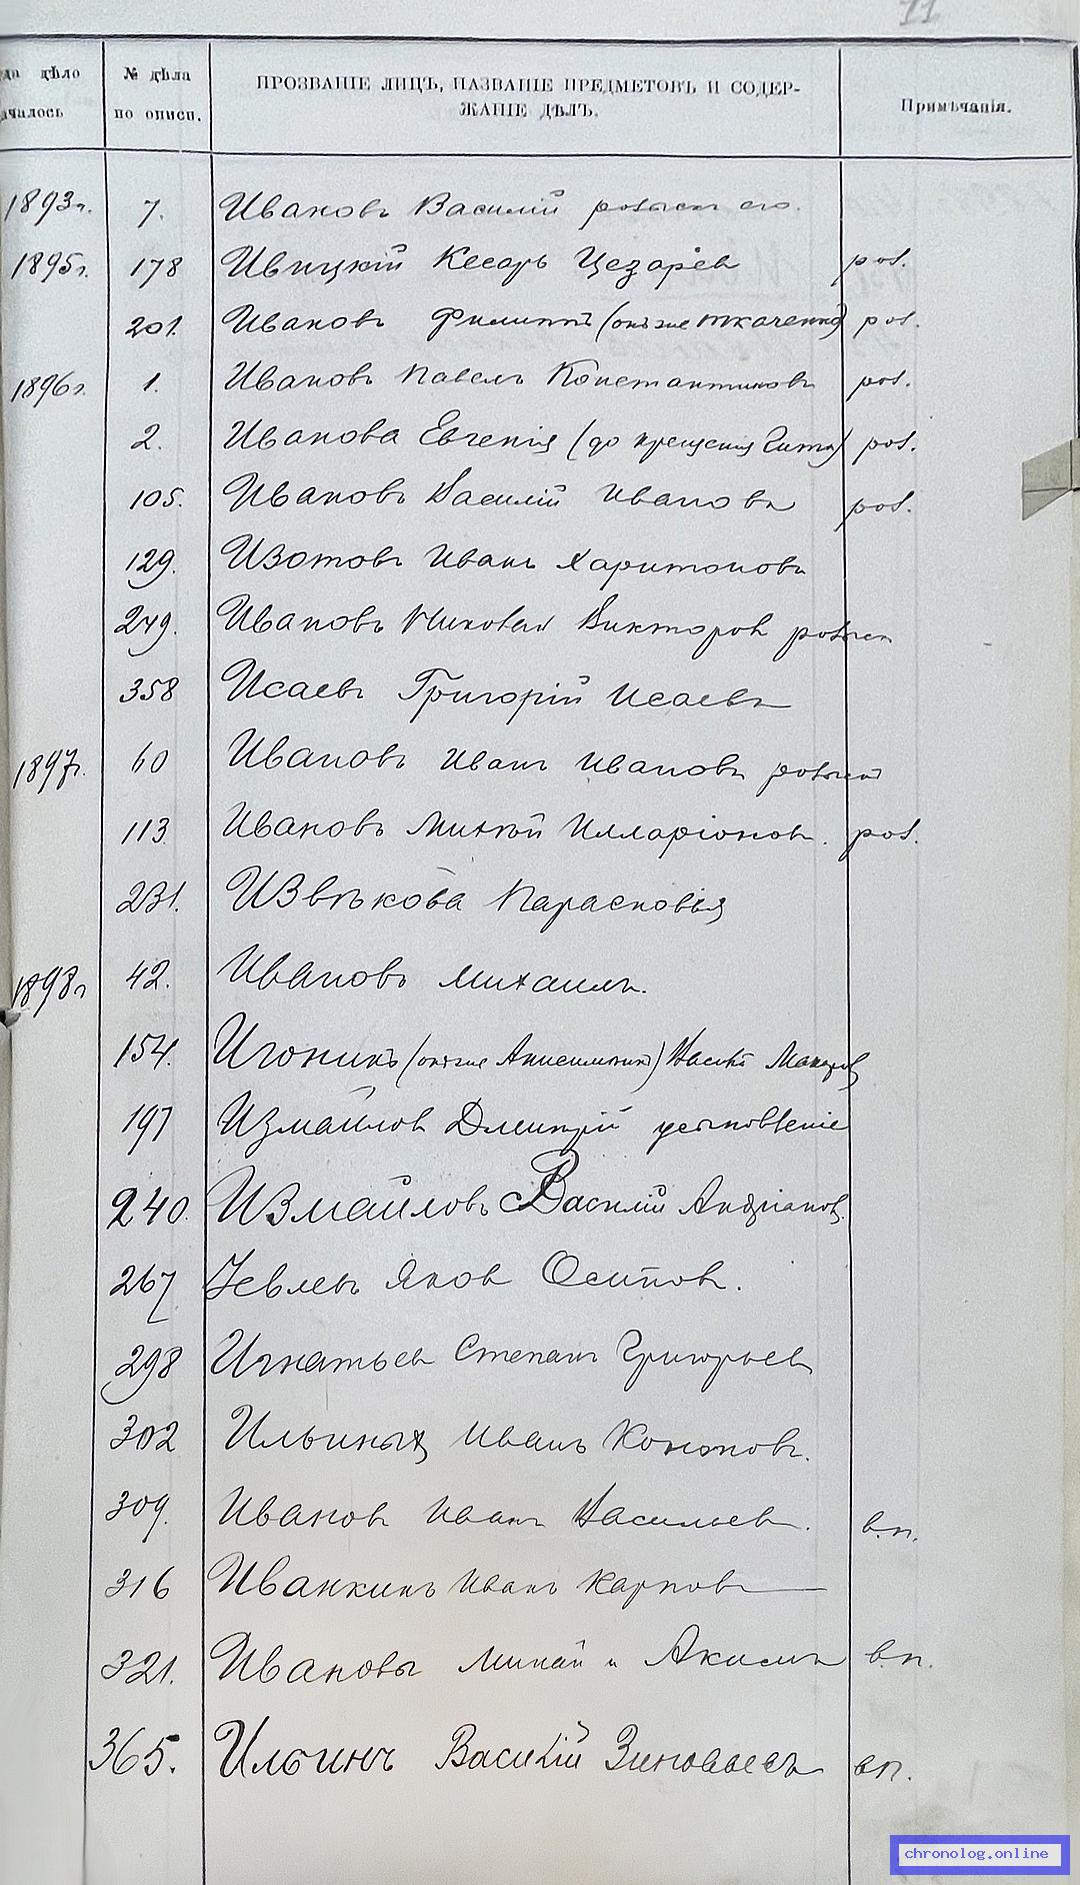 71
гда дѣло началось
№ дѣла по описи.
ПРОЗВАНІЕ ЛИЦЪ, НАЗВАНІЕ ПРЕДМЕТОВЪ И СОДЕР-
ЖАНІЕ ДѢЛЪ.
Примѣчанія.
1893г. 7. Ивановъ Василій розыскъ его.
1895г. 178 Ивицкій Кесарь Цезаріев роз.
201. Ивановъ Филиппъ (онъ же Ткаченко) роз.
1896г. 1. Ивановъ Павелъ Константиновъ роз.
2. Иванова Евгенія (до крещенія Гитл) роз.
105. Ивановъ Василій Ивановъ роз.
129. Изотовъ Иванъ Харитоновъ
249. Ивановъ Николай Викторов розыск
358 Исаевъ Григорій Исаевъ
1897г. 60 Ивановъ Иванъ Ивановъ розыск
113 Ивановъ Михѣй Илларіонов. роз.
231. Извѣкова Парасковья
1898г 42. Ивановъ Михаилъ.
154. Игонинъ (онъ же Анисимовъ) Макаров
197 Измаилов Дмитрій усыновленіе
240. Измаиловъ Василій Андріанов.
267 Іевлевъ Яков Осипов.
298 Игнатьев Степанъ Григорьев
302 Ильиных Иванъ Кононов.
309. Иванов Иванъ Васильев. в.п.
316 Иванкинъ Иванъ Карпов
321. Ивановы Минай и Акисим в.п.
365. Ильинъ Василій Зиновьевъ вп.
chronolog.online